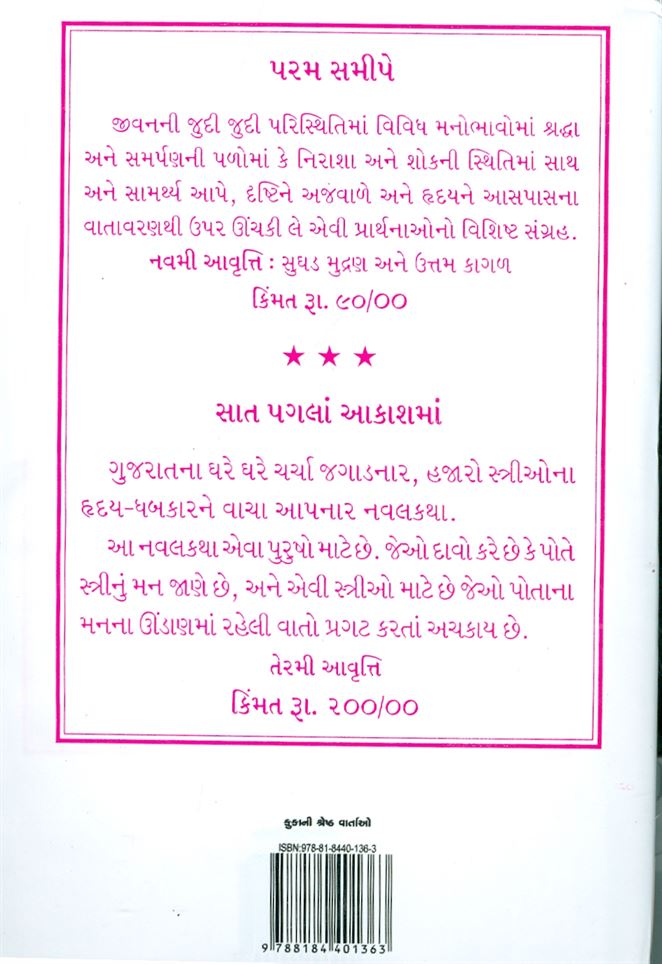 પરમ સમીપે
જીવનની જુદી જુદી પરિસ્થિતિમાં વિવિધ મનોભાવોમાં શ્રદ્ધા
અને સમર્પણની પળોમાં કે નિરાશા અને શોકની સ્થિતિમાં સાથ
અને સામર્થ્ય આપે, દૃષ્ટિને અજવાળે અને હૃદયને આસપાસના
વાતાવરણથી ઉપર ઊંચકી લે એવી પ્રાર્થનાઓનો વિશિષ્ટ સંગ્રહ.
નવમી આવૃત્તિ : સુઘડ મુદ્રણ અને ઉત્તમ કાગળ
કિંમત રૂા. ૯૦/૦૦
★ ★ ★
સાત પગલાં આકાશમાં
ગુજરાતના ઘરે ઘરે ચર્ચા જગાડનાર, હજારો સ્ત્રીઓના
હૃદય-ધબકારને વાચા આપનાર નવલકથા.
આ નવલકથા એવા પુરુષો માટે છે. જેઓ દાવો કરે છે કે પોતે
સ્ત્રીનું મન જાણે છે, અને એવી સ્ત્રીઓ માટે છે જેઓ પોતાના
મનના ઊંડાણમાં રહેલી વાતો પ્રગટ કરતાં અચકાય છે.
તેરમી આવૃત્તિ
કિંમત રૂા. ૨૦૦/૦૦
કુકાની શ્રેષ્ઠ વાર્તાઓ
ISBN:978-81-8440-136-3
9 788184 401363